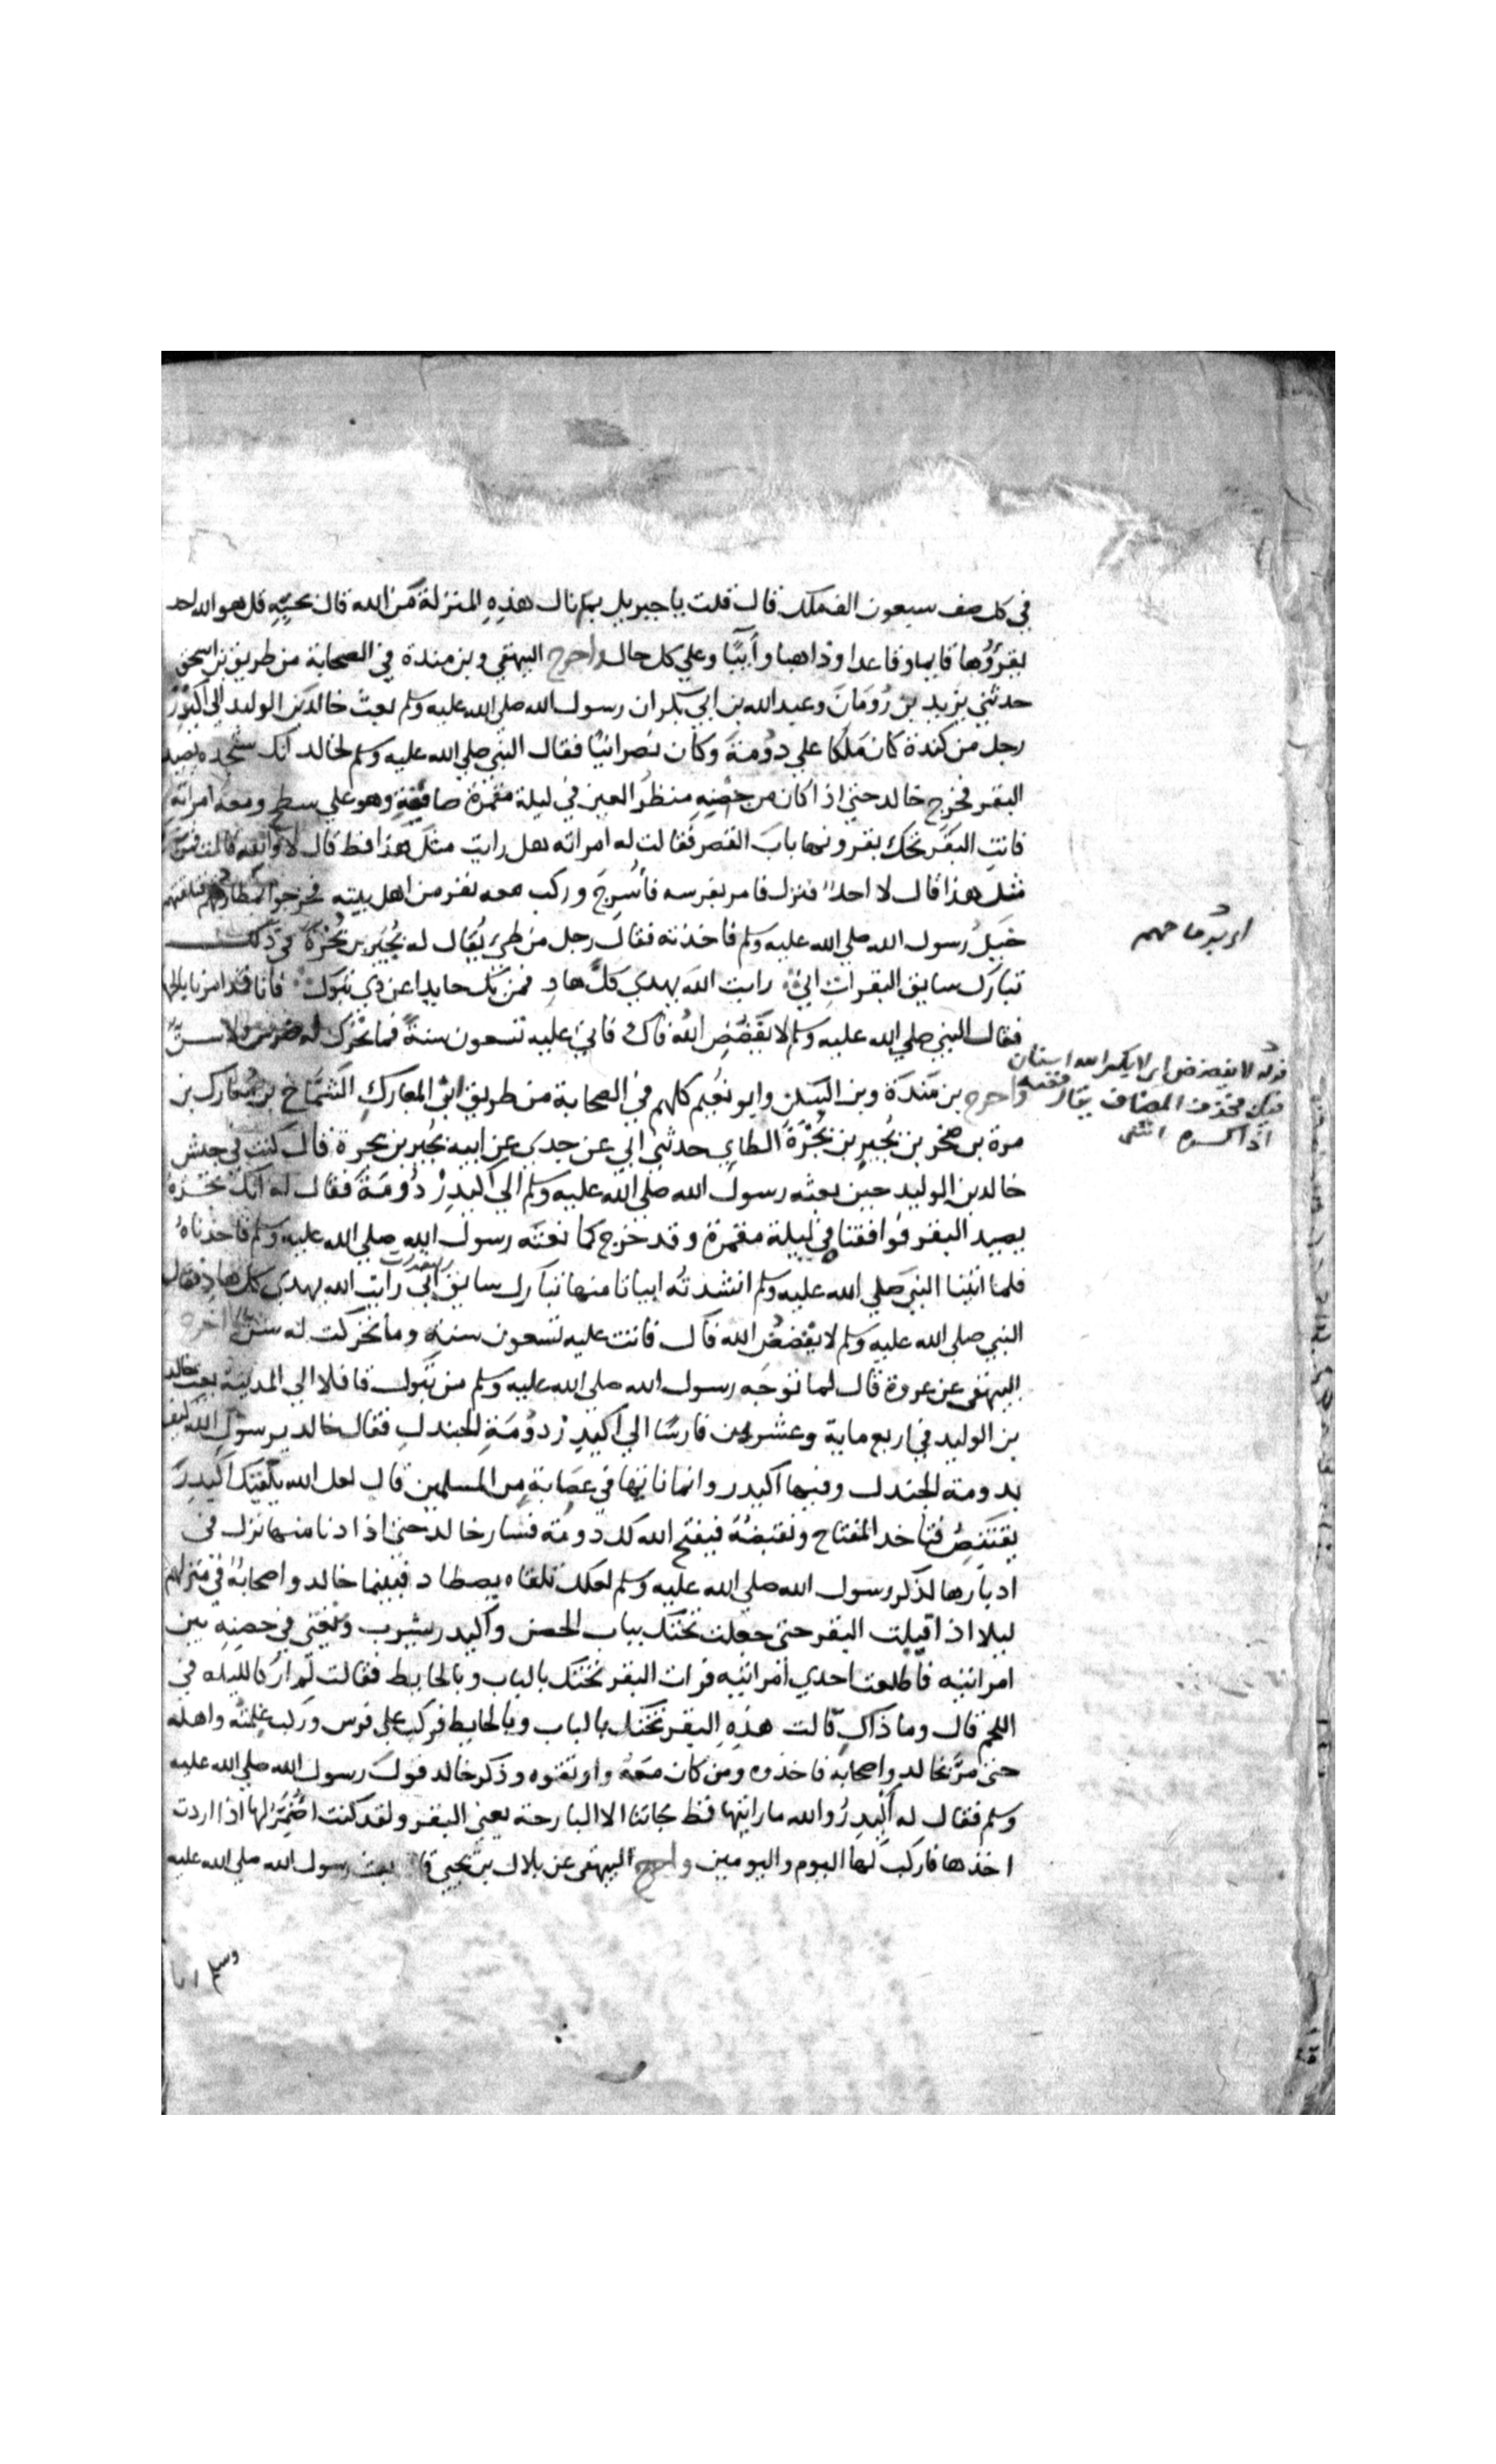 في كل صف سبعون الف ملك قال قلت يا جبريل بم نال هذه المنزلة من الله قال بحبه قل هو الله احد
يقرؤها قايما وقاعدا وذاهبا وآيبا وعلي كل حال واخرج البيهقي وبن مندة في الصحابة من طريق بن اسحق
حدثني يزيد بن رومان وعبد الله بن ابي بكر ان رسول الله صلي الله عليه وسلم بعث خالد بن الوليد الي اكيدر
رجل من كندة كان ملكا علي دومة وكان نصرانيا فقال النبي صلي الله عليه وسلم لخالد انك ستجده يصيد
البقر فخرج خالد حتي اذا كان من حصنه منظر العين في ليلة مقمرة صافية وهو علي سطح ومعه امراته
فاتت البقر تحك بقرونها باب القصر فقالت له امراته هل رايت مثل هذا قط قال لا والله قالت فمن
مثل هذا قال لا احد فنزل فامر بفرسه فأسرج وركب معه نفر من اهل بيته فخرجوا فتلقتهم
خيل رسول الله صلي الله عليه وسلم فاخذته فقال رجل من طي يقال له بجير بن بجرة في ذلك
تبارك سايق البقرات اني رايت الله يهدي كل هاد فمن يك حايدا عن ذي تبوك فانا قد امرنا بالجهاد
فقال النبي صلي الله عليه وسلم لا يفضض الله فاك فاتي عليه تسعون سنة فما تحرك له ضرس ولا سن
واخرج بن مندة وبن السكن وابو نعيم كلهم في الصحابة من طريق ابي المعارك الشماخ بن معارك بن
مرة بن صخر بن بجير بن بجرة الطاي حدثني ابي عن جدي عن ابيه بجير بن بجرة قال كنت في جيش
خالد بن الوليد حين بعثه رسول الله صلي الله عليه وسلم الي اكيدر دومة فقال له انك تجده
يصيد البقر فوافقنا في ليلة مقمرة وقد خرج كما نعته رسول الله صلي الله عليه وسلم فاخذناه
فلما اتينا النبي صلي الله عليه وسلم انشدته ابياتا منها تبارك سايق البقرات اني رايت الله يهدي كل هاد فقال
النبي صلي الله عليه وسلم لا يفضض الله فاك فاتت عليه تسعون سنة وما تحركت له سن واخرج
البيهقي عن عروة قال لما توجه رسول الله صلي الله عليه وسلم من تبوك قافلا الي المدينة بعث خالد
بن الوليد في اربع ماية وعشرين فارسا الي اكيدر دومة الجندل فقال خالد يرسول الله كيف
بدومة الجندل وفيها اكيدر وانما ناتيها في عصابة من المسلمين قال لعل الله يلقيك اكيدر
يقتنص فتاخد المفتاح وتقبضه فيفتح الله لك دومة فسار خالد حتي اذا دنا منها نزل في
ادبارها لذكر رسول الله صلي الله عليه وسلم لعلك تلقاه يصطاد فبينما خالد واصحابه في منزلهم
ليلا اذ اقبلت البقر حتي جعلت تحتك بباب الحصن واكيدر يشرب ويغني في حصنه بين
امراتيه فاطلعت احدي امراتيه فرات البقر تحتك بالباب وبالحايط فقالت لم ار كالليله في
اللحم قال وما ذاك قالت هذه البقر تحتك بالباب وبالحايط فركب علي فرس وركب غلمته واهله
حتي مر بخالد واصحابه فاخذوه ومن كان معه واوثقوه وذكر خالد قول رسول الله صلي الله عليه
وسلم فقال له اكيدر والله ما رايتها قط جاتنا الا البارحة يعني البقر ولقد كنت اضمر لها اذا اردت
اخذها فاركب لها اليوم واليومين واخرج البيهقي عن بلال بن يحيي قال بعث رسول الله صلي الله عليه
وسلم ابا
قوله لا يفضض اي لا يكسر الله اسنان
فيك فحذف المضاف يقال فضه
اذا كسره انتهي